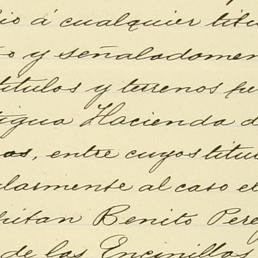 io á cualquier titu
o y señaladamen
titulos y terrenos pe
tigua Hacienda d
as, entre cuyos titu
larmente al caso e
pitan Benito Pere
de las Encinillas